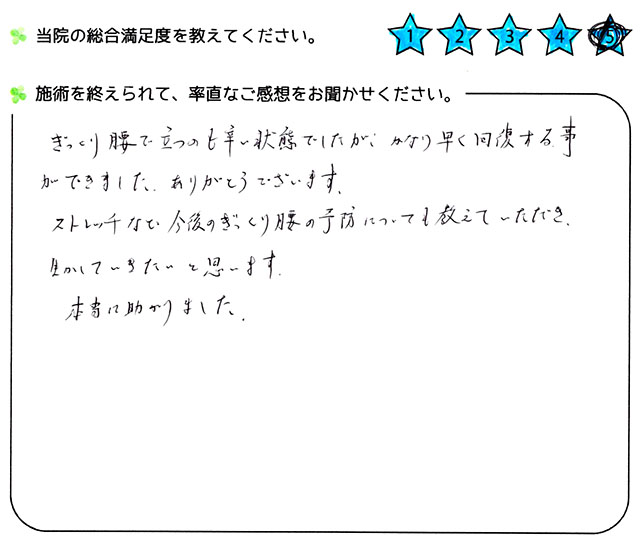 当院の総合満足度を教えてください。
1 2 3 4 5
施術を終えられて、率直なご感想をお聞かせください。
ぎっくり腰で立つのも辛い状態でしたが、かなり早く回復する事
ができました。ありがとうございます。
ストレッチなど今後のぎっくり腰の予防についても教えていただき、
生かしていきたいと思います。
本当に助かりました。